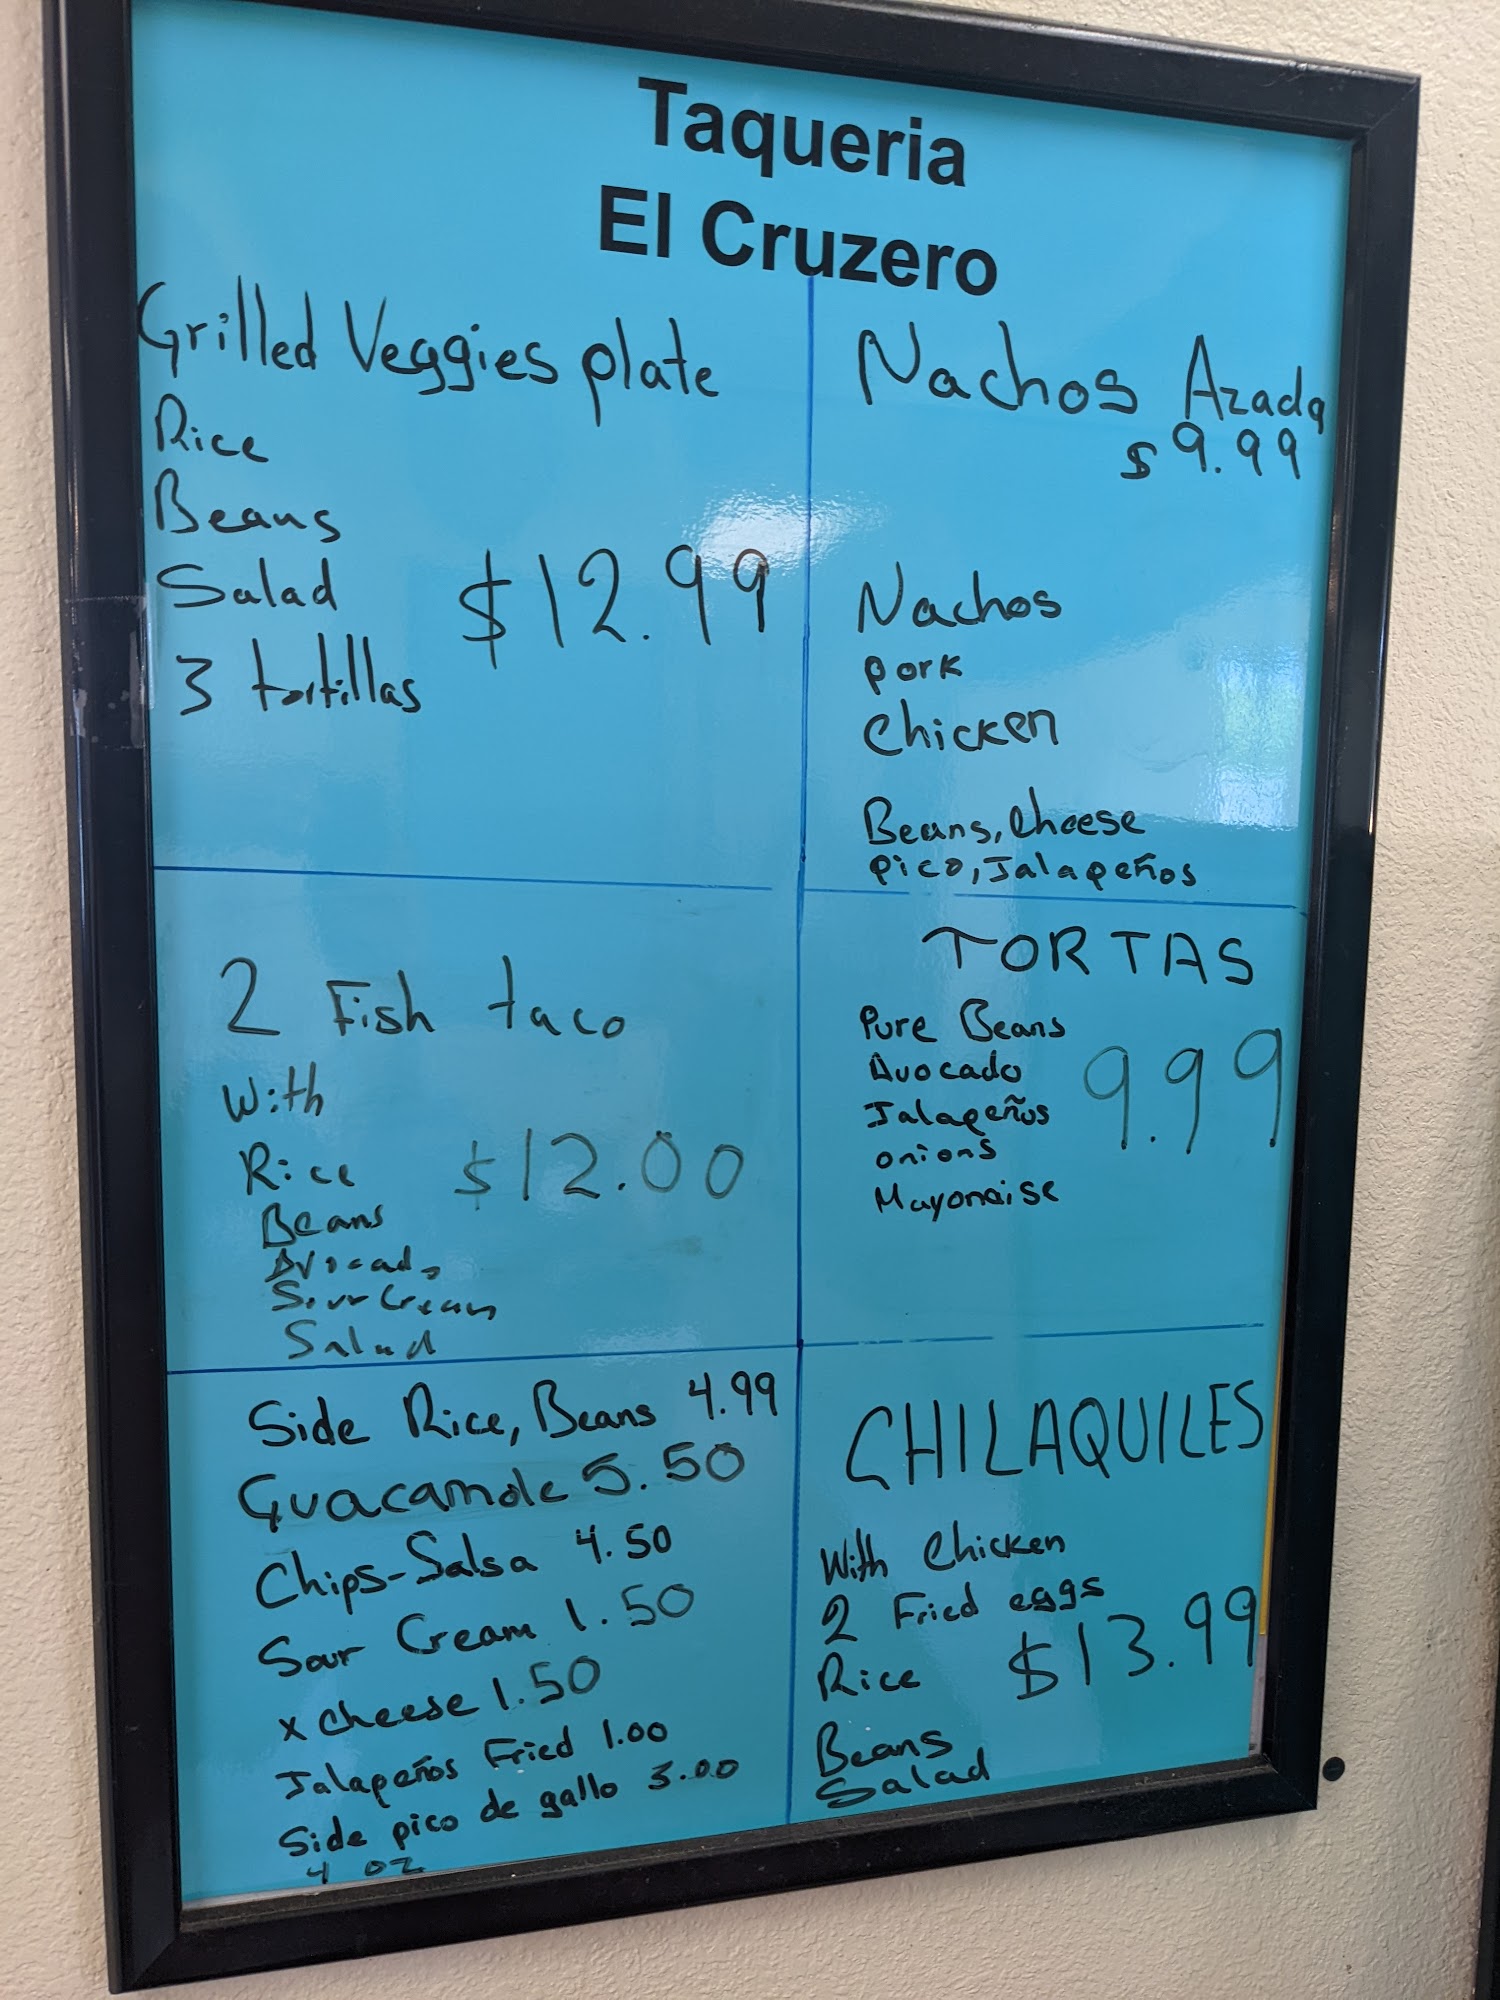 Taqueria
El Cruzero
Grilled Veggies plate
Rice
Beans
Salad
$12.99
3 tortillas
Nachos Azada
$9.99
Nachos
pork
chicken
Beans, cheese
pico, Jalapeños
2 Fish taco
With
Rice
$12.00
Beans
Avocado
Sour Cream
Salad
TORTAS
Pure Beans
Avocado
9.99
Jalapeños
onions
Mayonaise
Side Rice, Beans 4.99
Guacamole 5.50
Chips-Salsa 4.50
Sour Cream 1.50
x cheese 1.50
Jalapeños Fried 1.00
Side pico de gallo 3.00
4 oz
CHILAQUILES
With Chicken
2 Fried eggs
Rice
$13.99
Beans
Salad